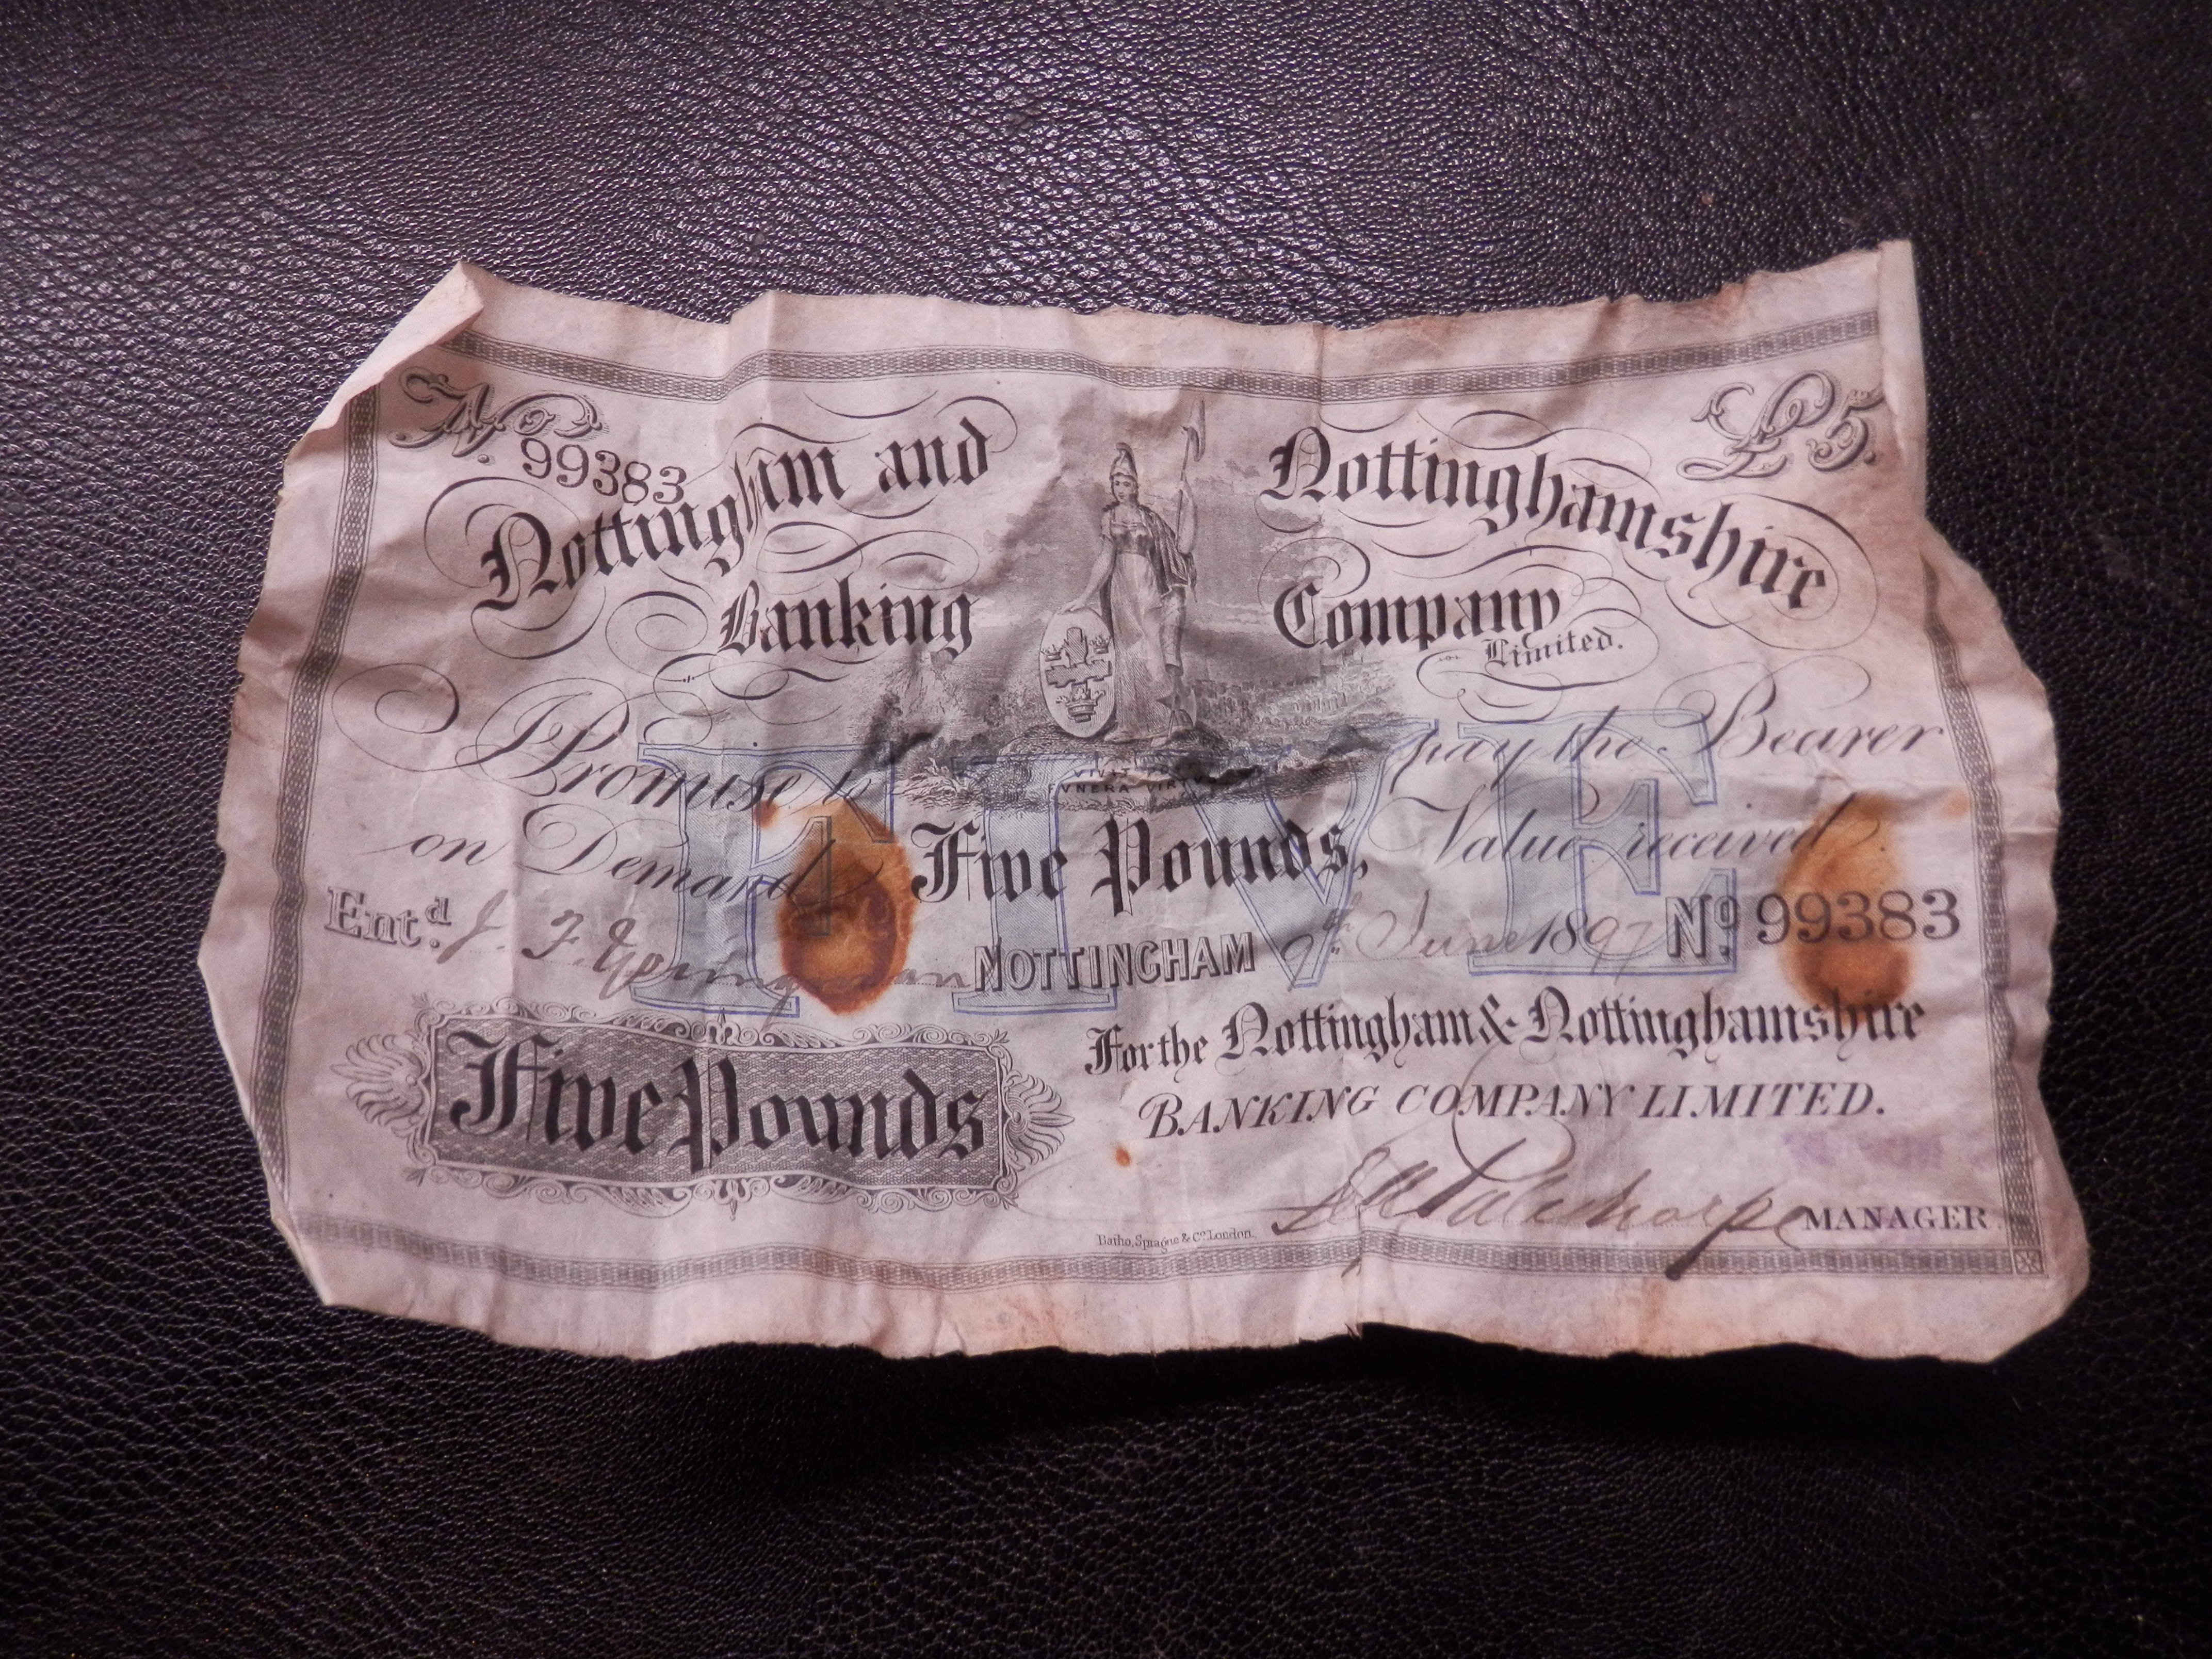 No. £5.
99383
Nottingham and Nottinghamshire
Banking Company
Limited.
Promise to pay the Bearer
on Demand Five Pounds, Value received
FIVE
Ent.d J. F. NOTTINGHAM 9th June 1897 No. 99383
For the Nottingham & Nottinghamshire
Five Pounds
BANKING COMPANY LIMITED.
MANAGER.
Batho, Sprague & Co. London.